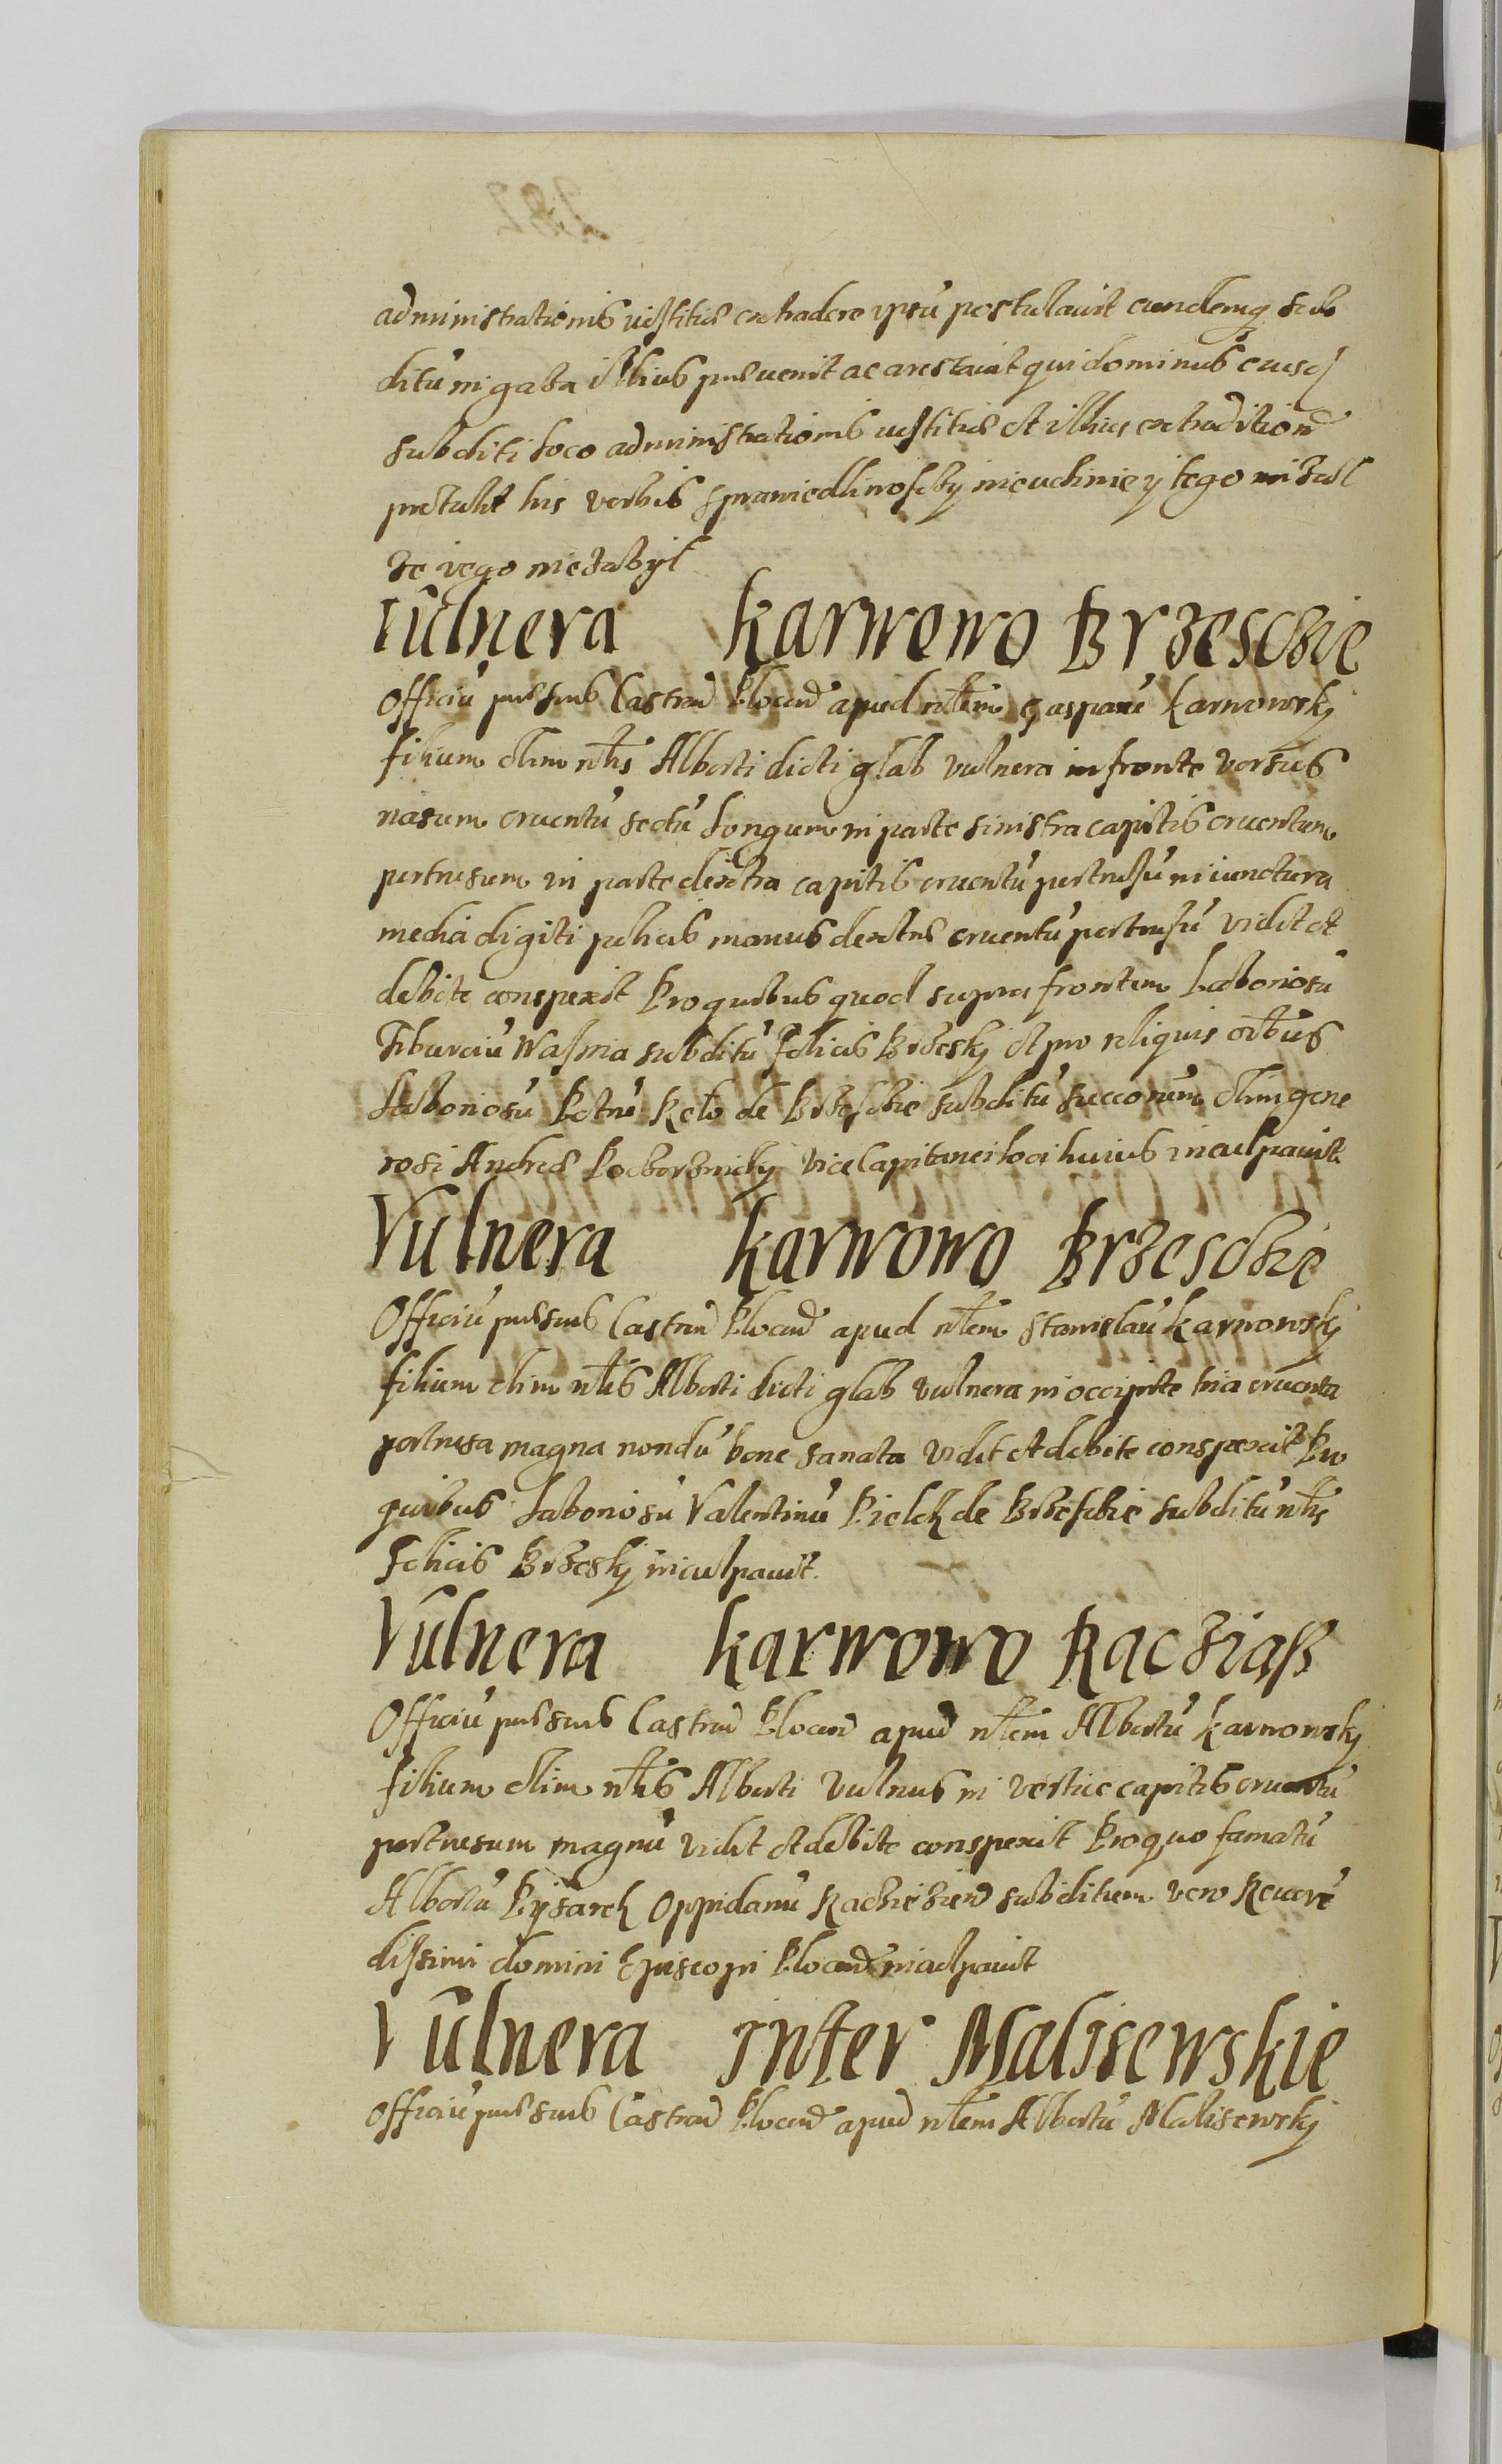 administrationis iustitiae extradere ipsū postulavit eundemq sub
ditū in gaza illius praevenit ac arestavit qui dominus eiusd
subditi loco administrationis iustitiae et illius extradition
protulit his verbis sprawiedliwosczy nieuchinie y tego
ze iego niezabyl
Vulnera Karwowo Brzesckie
Officiū praesens Castren Plocen apud nlem Gasparū Karwowsky
filium olim nlis Alberti dicti glab vulnera in fronte versus
nasum cruentū sectū longum in parte sinistra capitis cruentum
pertusum in parte dextra capitis cruentū pertusū in iunctura
media digiti policis manus dextrae cruentū pertusū vidit et
debite conspexit Pro quibus quod supra frontem Laboriosū
Tiburciū Wasnia subditū Felicis Brzesky et pro reliquis oibus
Laboriosū Petrū Relo de Brzesckie subditū successorum olim gene
rosi Andreae Poczorznicky Vice Capitanei loci huius inculpavit
Vulnera Karwowo Brzesckie
Officiū praesens Castren Plocen apud nlem Stanislaū Karwowsky
filium olim nlis Alberti dicti glab vulnera in occipite tria cruenta
pertusa magna nondū bene sanata vidit et debite conspexit Pro
quibus Laboriosū Valentinū Pielch de Brzesckie subditū nlis
Felicis Brzesky inculpavit.
Vulnera Karwowo Racziasz
Officiū praesens Castren Plocen apud nlem Albertū Karwowsky
filium olim nlis Alberti vulnus in vertice capitis cruentū
pertusum magnū vidit et debite conspexit Pro quo famatū
Albertū Pysarek Oppidanū Racziezien subditum vero Reverē
dissimi domini Episcopi Plocen inculpavit
Vulnera inter Malisewskie
Officiū praesens Castren Plocen apud nlem Albertū Malisewsky